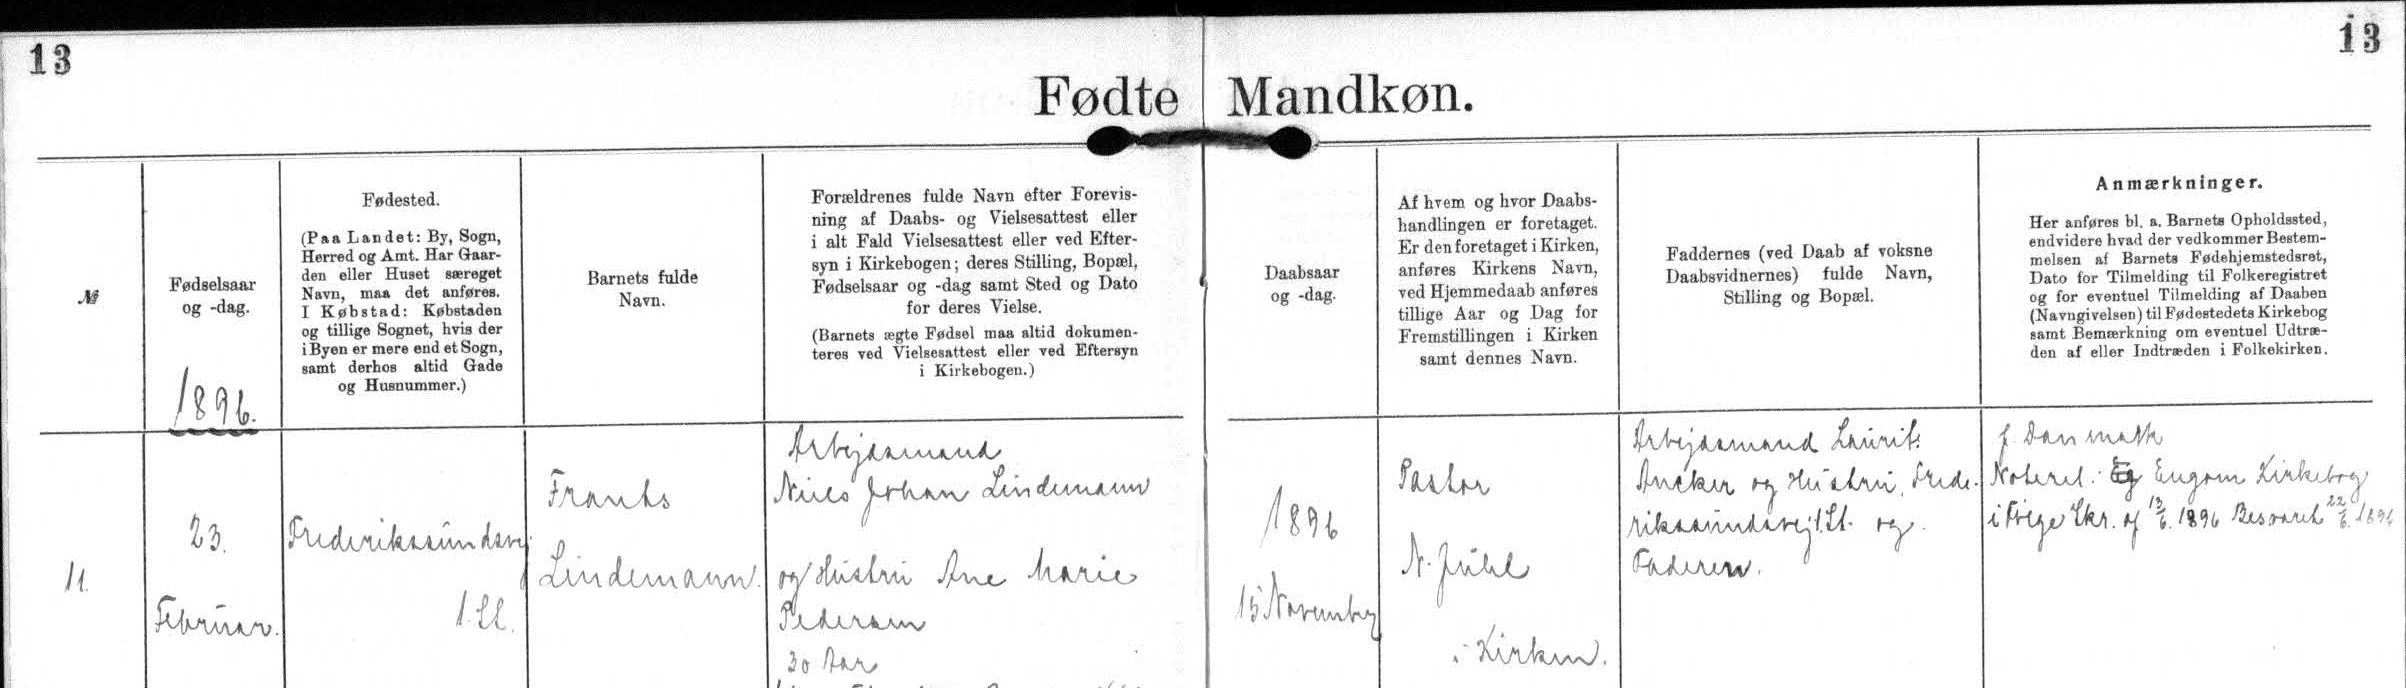 13
13
Fødte Mandkøn.
№
Fødselsaar
og -dag.
1896.
Fødested.
(Paa Landet: By, Sogn,
Herred og Amt. Har Gaar-
den eller Huset særeget
Navn, maa det anføres.
I Købstad: Købstaden
og tillige Sognet, hvis der
i Byen er mere end et Sogn,
samt derhos altid Gade
og Husnummer.)
Barnets fulde
Navn.
Forældrenes fulde Navn efter Forevis-
ning af Daabs- og Vielsesattest eller
i alt Fald Vielsesattest eller ved Efter-
syn i Kirkebogen; deres Stilling, Bopæl,
Fødselsaar og -dag samt Sted og Dato
for deres Vielse.
(Barnets ægte Fødsel maa altid dokumen-
teres ved Vielsesattest eller ved Eftersyn
i Kirkebogen.)
Daabsaar
og -dag.
Af hvem og hvor Daabs-
handlingen er foretaget.
Er den foretaget i Kirken,
anføres Kirkens Navn,
ved Hjemmedaab anføres
tillige Aar og Dag for
Fremstillingen i Kirken
samt dennes Navn.
Faddernes (ved Daab af voksne
Daabsvidnernes) fulde Navn,
Stilling og Bopæl.
Anmærkninger.
Her anføres bl. a. Barnets Opholdssted,
endvidere hvad der vedkommer Bestem-
melsen af Barnets Fødehjemstedsret,
Dato for Tilmelding til Folkeregistret
og for eventuel Tilmelding af Daaben
(Navngivelsen) til Fødestedets Kirkebog
samt Bemærkning om eventuel Udtræ-
den af eller Indtræden i Folkekirken.
11.
23.
Februar.
Frederikssundsvej
1. St.
Frants
Lindemann.
Arbejdsmand
Johan Lindemann
og Hustru Ane Marie
Pedersen
30 Aar
1896
15 November
Pastor
N. Juhl
i Kirken.
Arbejdsmand Laurits
Ancker og Hustru, Frede-
rikssundsvej 1. St. og
Faderen.
f. Danmark
Noteret: Kirkebog
i Skr. af 13/6. 1896 Besvaret 22/6. 1896